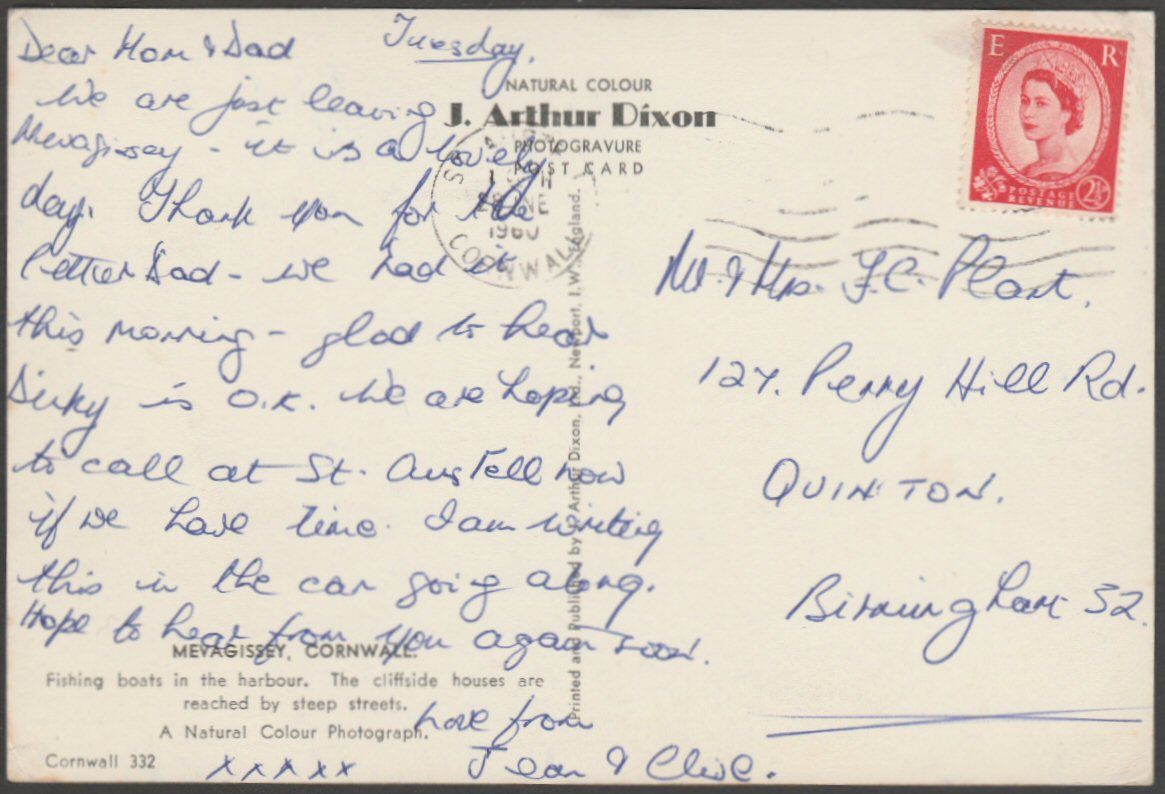 Dear Mom & Dad Tuesday,
We are just leaving
Mevagissey - it is a lovely
day. Thank you for the
letter Dad - we had it
this morning - glad to hear
Dinky is O.K. We are hoping
to call at St. Austell now
if we have time. I am writing
this in the car going along.
Hope to hear from you again soon.
Love from
xxxxx Jean & Clive.
NATURAL COLOUR
J. Arthur Dixon
PHOTOGRAVURE
POST CARD
1960
CORNWALL
E R
POSTAGE
REVENUE
2½D
Mr. & Mrs. F.C. Plant,
127. Perry Hill Rd.
QUINTON.
Birmingham 32.
Printed and Published by J. Arthur Dixon, Ltd., Newport, I.W., England.
MEVAGISSEY, CORNWALL.
Fishing boats in the harbour. The cliffside houses are
reached by steep streets.
A Natural Colour Photograph.
Cornwall 332